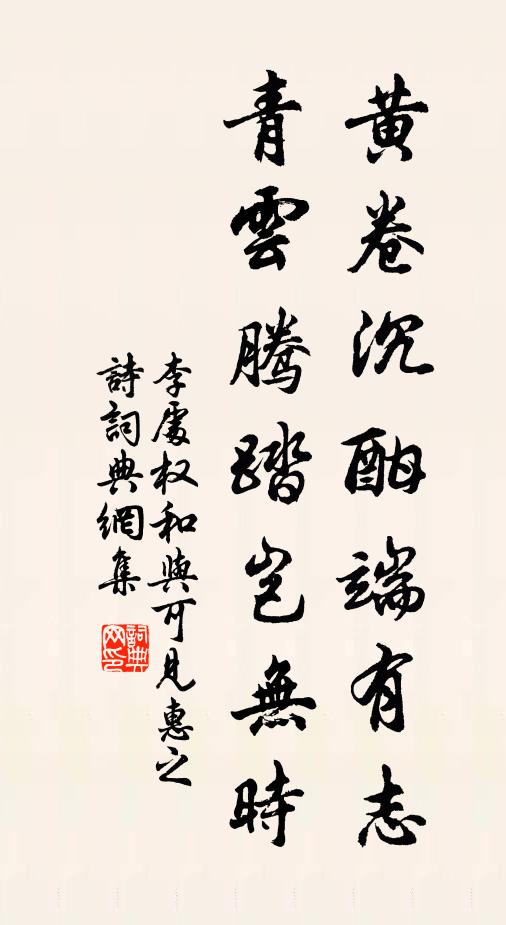 黄卷沉酣端有志
青雲騰踏岂無時
李處权和與可見惠之
詩詞典網集
詞典
网印